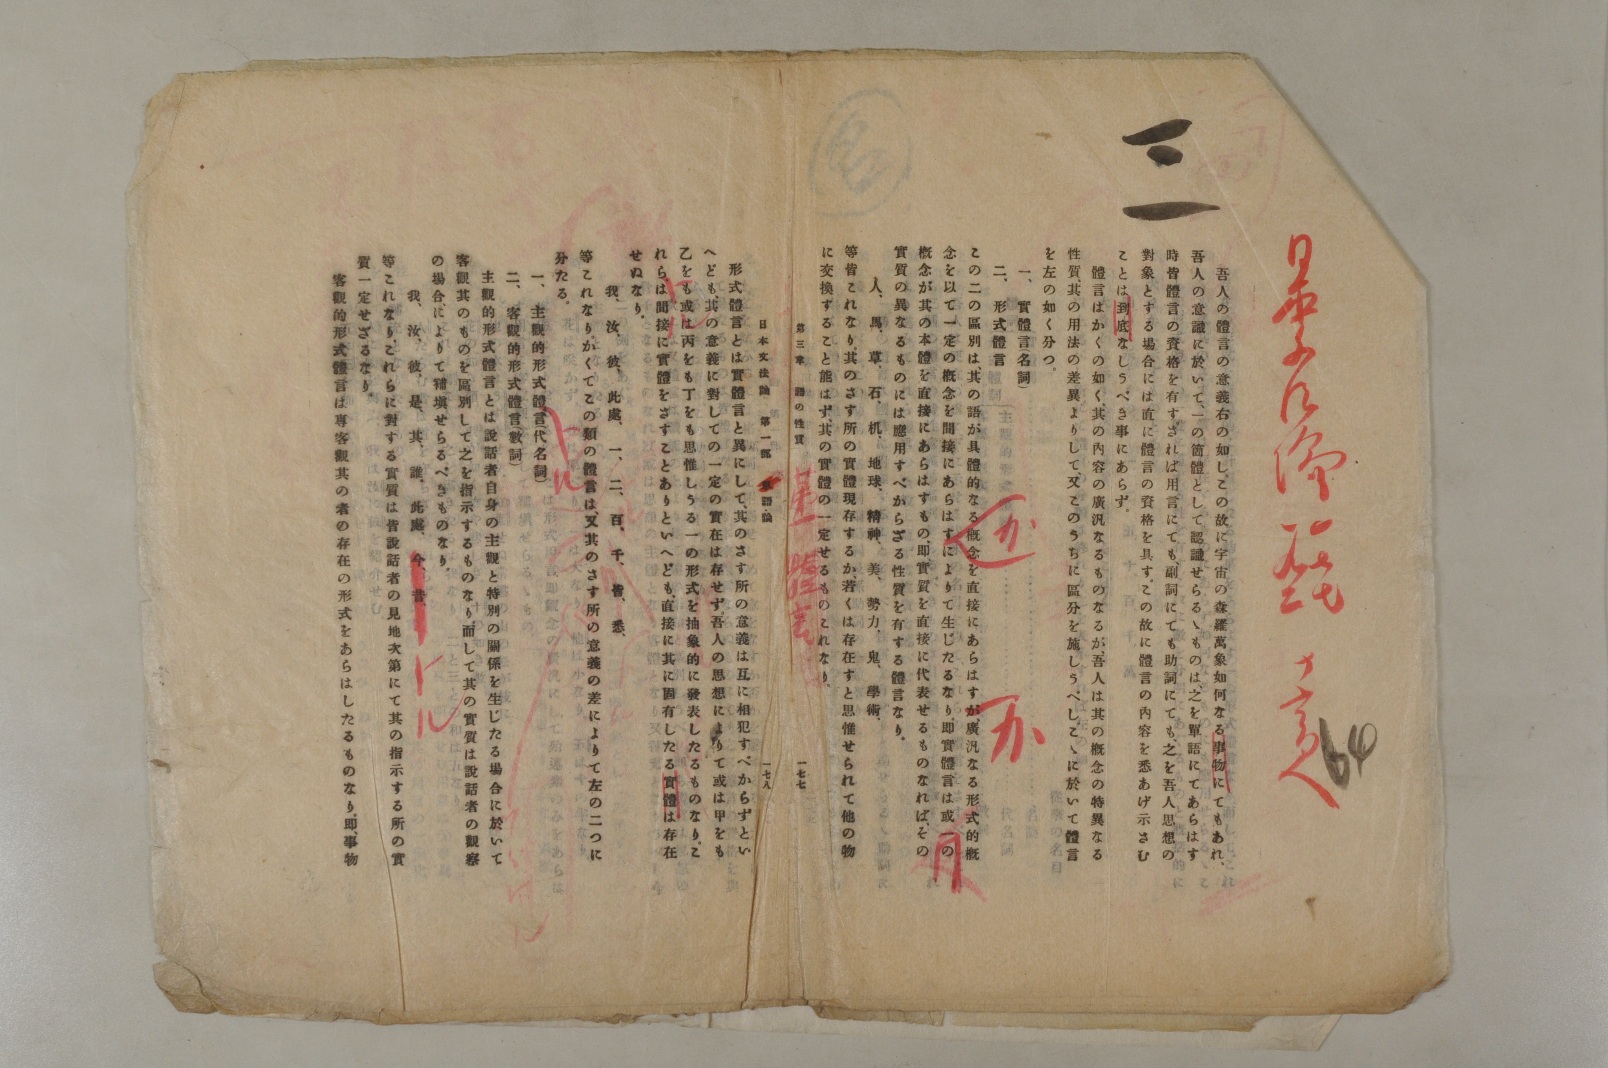 三一
64
吾人の體言の意義右の如し。この故に宇宙の森羅萬象如何なる事物にてもあれ、
吾人の意識に於いて、一の箇體として認識せらるゝものは之を單語にてあらはす
時皆體言の資格を有す。されば用言にても、副詞にても助詞にても、之を吾人思想の
對象とする場合には直に體言の資格を具す。この故に體言の內容を悉あげ示さむ
ことは到底なしうべき事にあらず。
體言はかくの如く、其の內容の廣汎なるものなるが、吾人は其の概念の特異なる
性質、其の用法の差異よりして、又このうちに區分を施しうべし。こゝに於いて體言
を左の如く分つ。
一、實體言(名詞)
二、形式體言
この二の區別は、其の語が具體的なる概念を直接にあらはすが、廣汎なる形式的概
念を以て一定の概念を間接にあらはすによりて生じたるなり。卽實體言は或一の
概念が其の本體を直接にあらはすもの、卽實質を直接に代表せるものなれば、その
實質の異なるものには應用すべからざる性質を有する體言なり。
人、馬、草、石、机、地球、精神、美、勢力、鬼、學術、
等皆これなり。其のさす所の實體現存するか、若くは存在すと思惟せられて他の物
に交換すること能はず、其の實體の一定せるものこれなり。
第三章 語の性質 一七七
日本文法論 第一部 語論 一七八
形式體言とは實體言と異にして、其のさす所の意義は互に相犯すべからずとい
へども、其の意義に對しての一定の實在は存せず、吾人の思想によりて或は甲をも
乙をも或は丙をも丁をも思惟しうる一の形式を抽象的に發表したるものなり。こ
れらは間接に實體をさすことありといへども、直接に其に固有したる實體は存在
せぬなり。
我、汝、彼、此處、一、二、百、千、皆、悉、
等これなり。かくてこの類の體言は、又其のさす所の意義の差によりて左の二つに
分たる。
一、主觀的形式體言(代名詞)
二、客觀的形式體言(數詞)
主觀的形式體言とは說話者自身の主觀と特別の關係を生じたる場合に於いて
客觀其のものを區別して之を指示するものなり。而して其の實質は說話者の觀察
の場合によりて補塡せらるべきものなり。
我、汝、彼、是、其、誰、此處、今、昔、
等これなり。これらに對する實質は皆說話者の見地次第にて其の指示する所の實
質一定せざるなり。
客觀的形式體言は專客觀其の者の存在の形式をあらはしたるものなり。卽、事物
トル
トル
トル